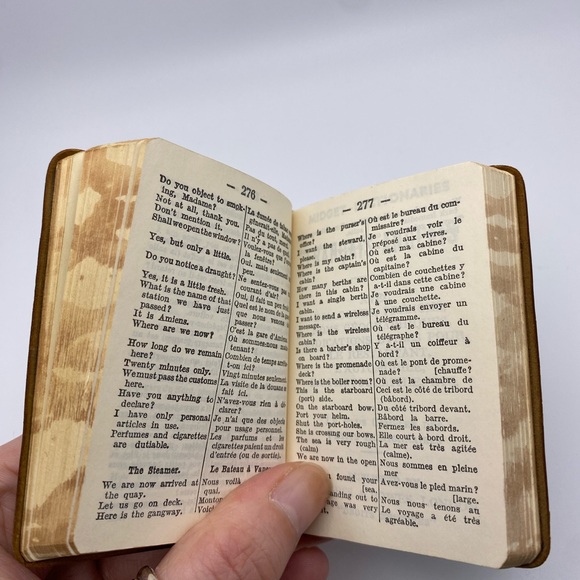 — 276 —
Do you object to smok-
ing, Madame?
Not at all, thank you.
Don't mention it.
Shall we open the window?
Yes, but only a little.
Do you notice a draught?
Yes, it is a little fresh.
What is the name of that
station we have just
passed?
It is Amiens.
Where are we now?
How long do we remain
here?
Twenty minutes only.
We must pass the customs
here.
Have you anything to
declare?
I have only personal
articles in use.
Perfumes and cigarettes
are dutiable.
The Steamer.
We are now arrived at
the quay.
Let us go on deck.
Here is the gangway.
La fumée de
Pas du tout,
Il n'y a pas de
Voulez-vous
la fenêtre?
Oui, mais seulement
peu.
Ne sentez-vous pas
Oui, il fait un peu
Quel est le nom de la
que nous venons
passer?
C'est la gare d'Amiens
Où sommes-nous
tenant?
Combien de temps
t-on ici?
Vingt minutes seulement.
La visite de la douane se
fait ici.
N'avez-vous rien à dé-
clarer?
Je n'ai que des objets
pour usage personnel.
Les parfums et les
cigarettes paient un droit
d'entrée (ou de sortie).
Le Bateau à
Nous voilà
quai.
— 277 —
Where is the purser's
office?
I want the steward,
please.
Where is my cabin?
Where is the captain's
cabin?
How many berths are
there in this cabin?
I want a single berth
cabin.
I want to send a wireless
message.
Where is the wireless
cabin?
Is there a barber's shop
on board?
Where is the promenade
deck?
Where is the boiler room?
This is the starboard
(port) side.
On the starboard bow.
Port your helm.
Shut the port-holes.
She is crossing our bows.
The sea is very rough
(calm)
We are now in the open
found your
[sea.
was very
Où est le bureau du com-
missaire?
Je voudrais voir le
préposé aux vivres.
Où est ma cabine?
Où est la cabine du
capitaine?
Combien de couchettes y
a-t-il dans cette cabine?
Je voudrais une cabine
à une couchette.
Je voudrais envoyer un
télégramme.
Où est le bureau du
télégraphe?
Y a-t-il un coiffeur à
bord?
Où est le pont de prome-
nade? [chauffe?
Où est la chambre de
Ceci est le côté de tribord
(bâbord).
Du côté tribord devant.
Bâbord la barre.
Fermez les sabords.
Elle court à bord droit.
La mer est très agitée
(calme).
Nous sommes en pleine
mer
Avez-vous le pied marin?
[large.
Nous nous tenons au
Le voyage a été très
agréable.